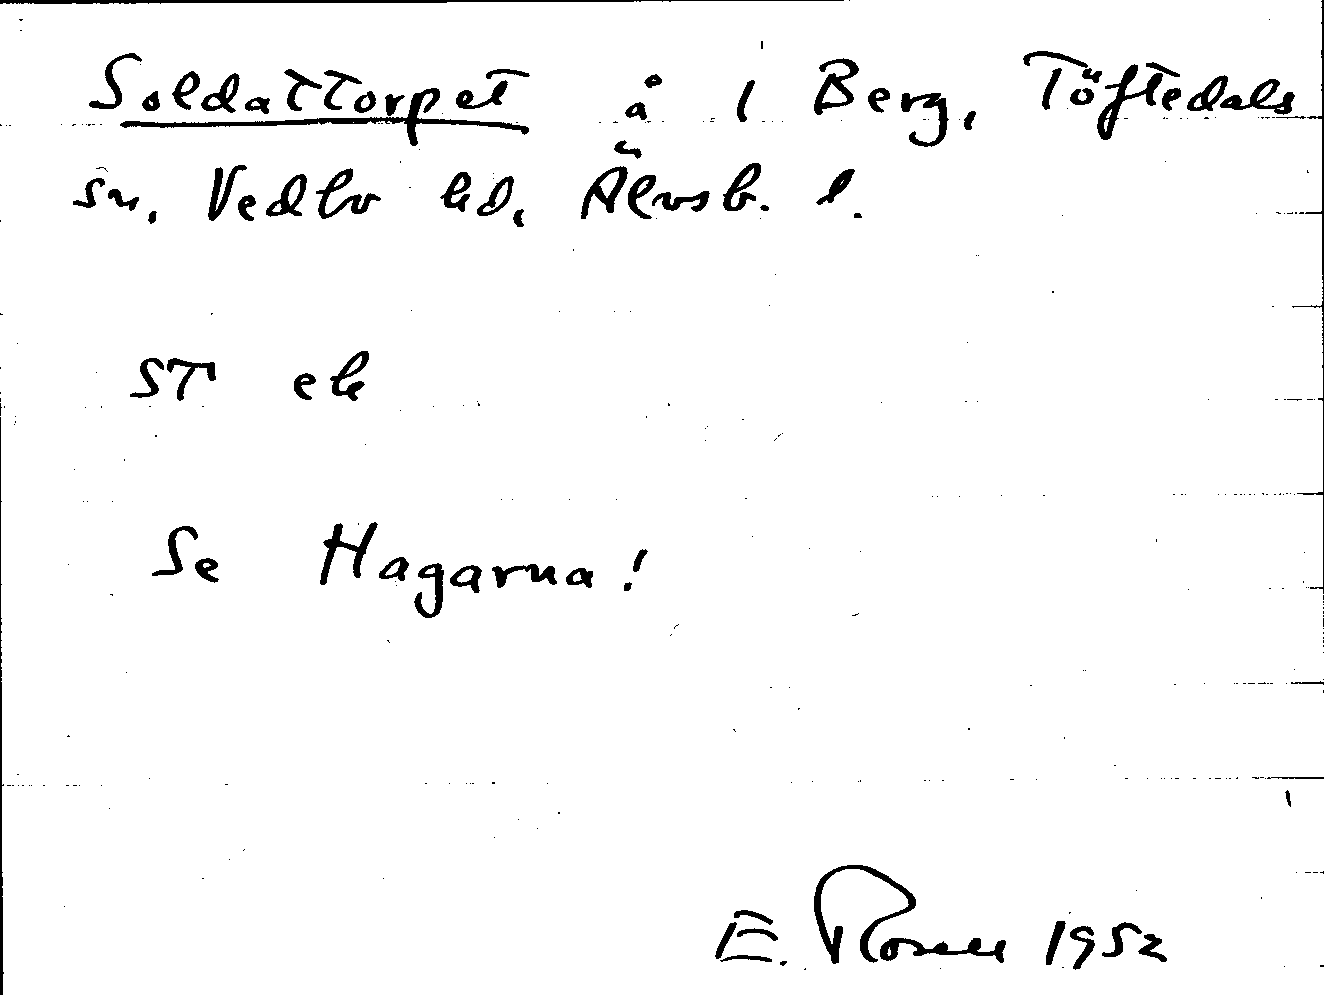 Soldattorpet å 1 Berg, Töftedals
sn, Vedbo hd, Älvsb. l.
ST ek
Se Hagarna!
E. Rosell 1952